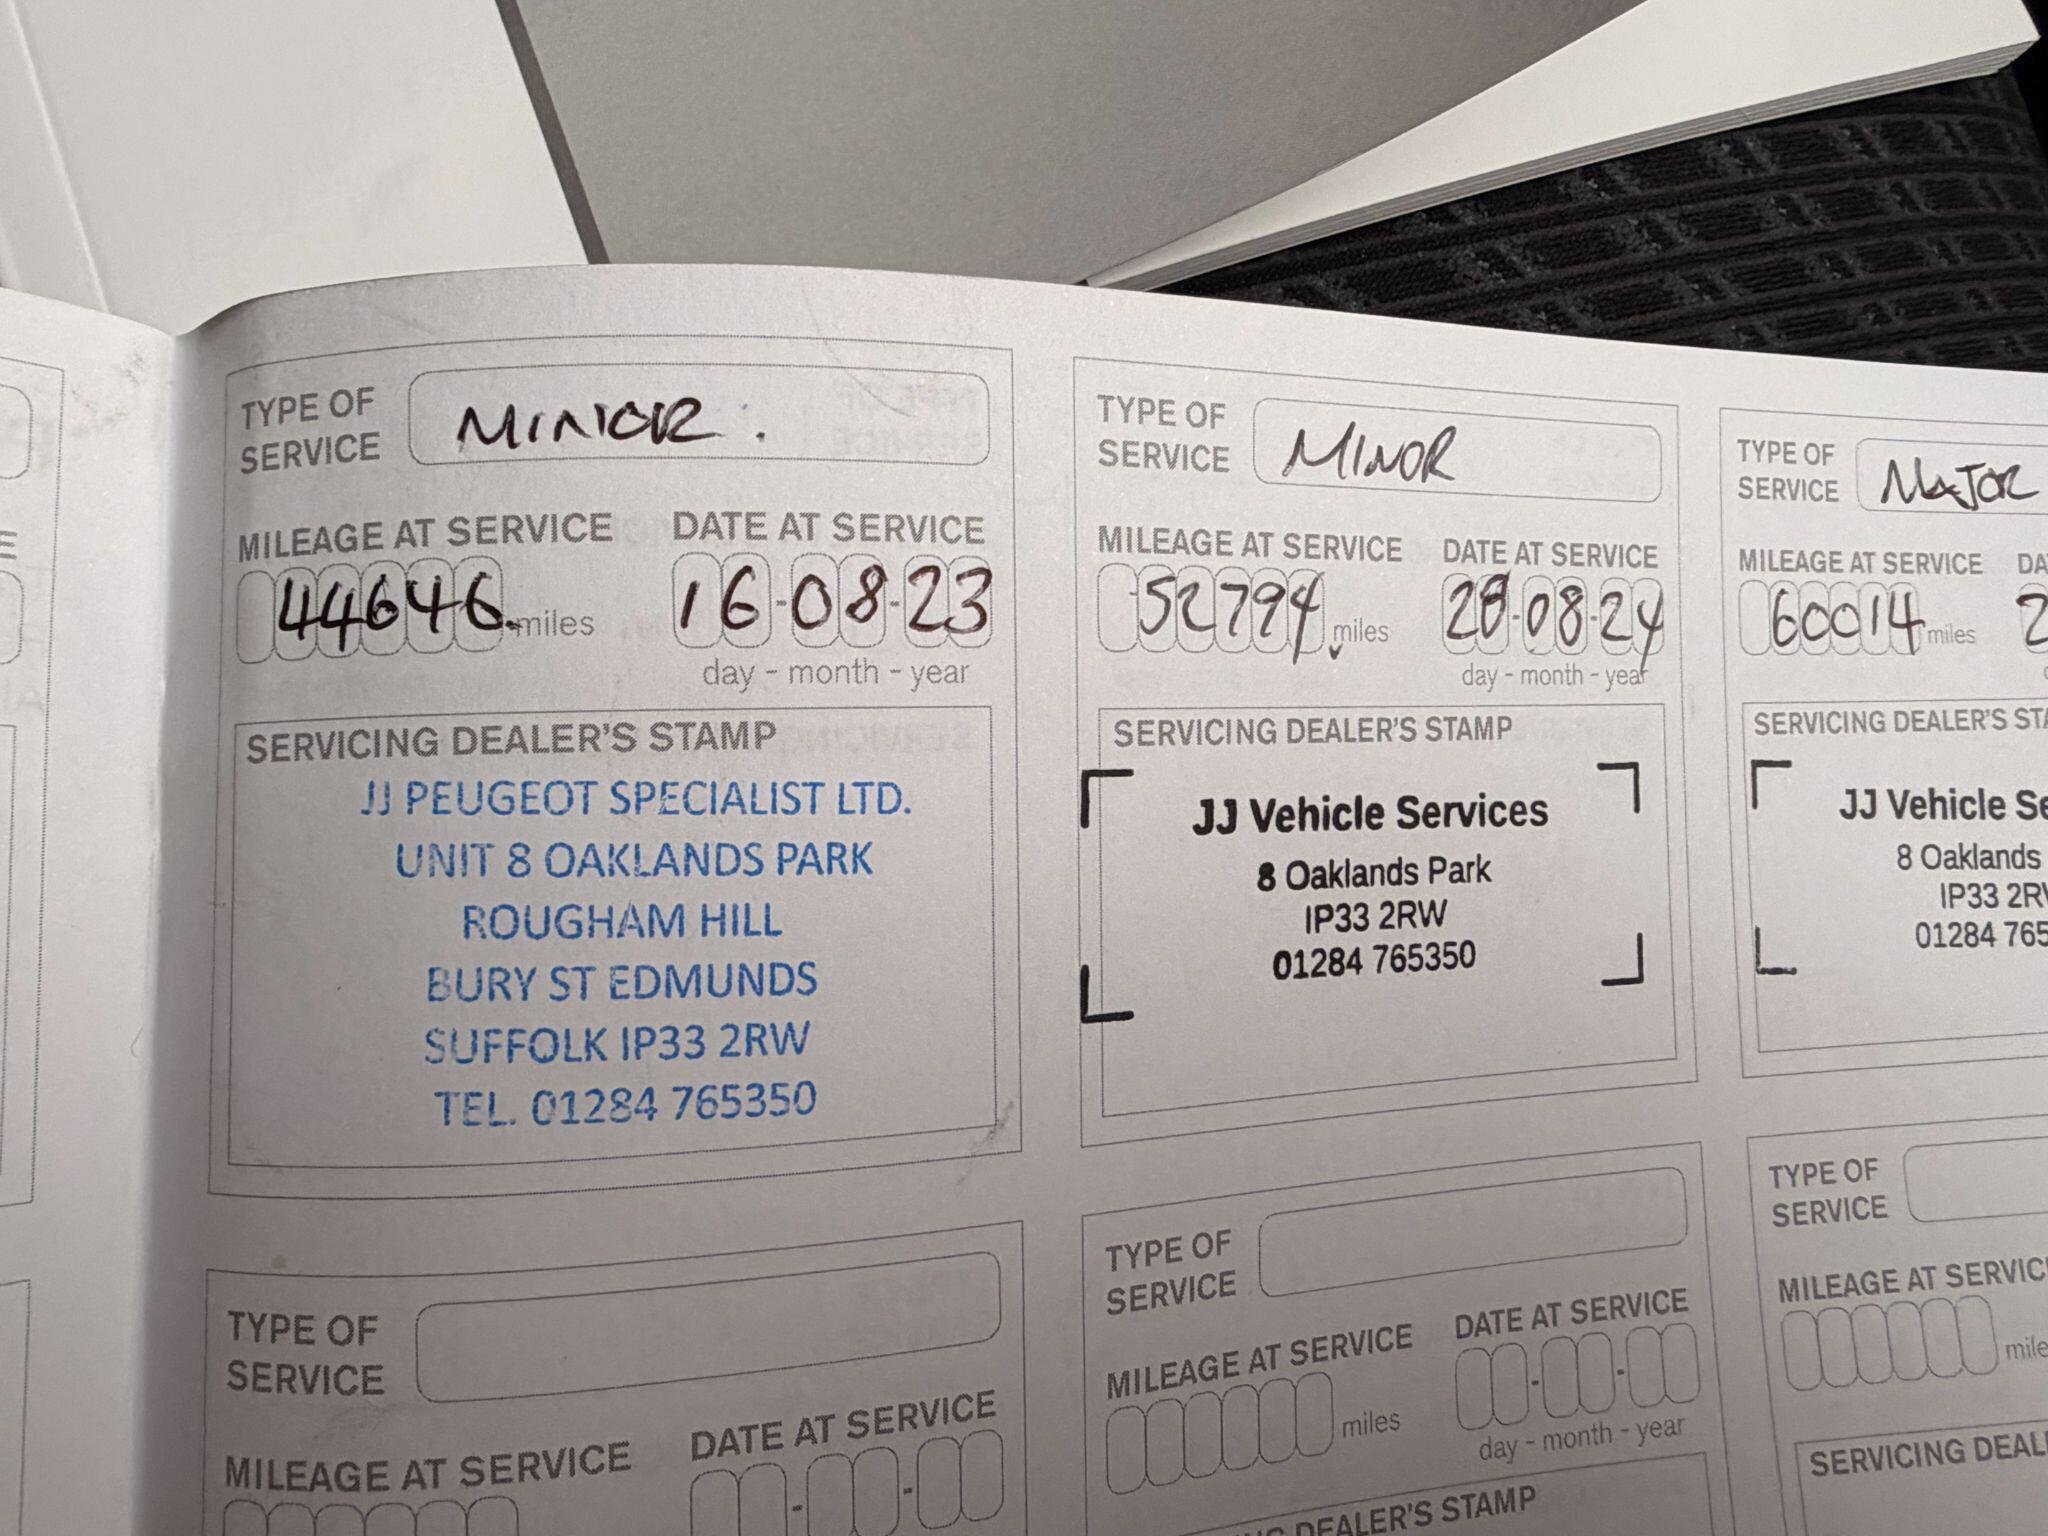 TYPE OF
SERVICE
MINIOR.
MILEAGE AT SERVICE
44646. miles
DATE AT SERVICE
16-08-23
day - month - year
SERVICING DEALER'S STAMP
JJ PEUGEOT SPECIALIST LTD.
UNIT 8 OAKLANDS PARK
ROUGHAM HILL
BURY ST EDMUNDS
SUFFOLK IP33 2RW
TEL. 01284 765350
TYPE OF
SERVICE
MINOR
MILEAGE AT SERVICE
52794 miles
DATE AT SERVICE
28-08-24
day - month - year
SERVICING DEALER'S STAMP
JJ Vehicle Services
8 Oaklands Park
IP33 2RW
01284 765350
TYPE OF
SERVICE
MAJOR
MILEAGE AT SERVICE
60014 miles
DA
2
SERVICING DEALER'S STA
JJ Vehicle Se
8 Oaklands
IP33 2R
01284 765
TYPE OF
SERVICE
MILEAGE AT SERVICE
DATE AT SERVICE
TYPE OF
SERVICE
MILEAGE AT SERVICE
miles
DATE AT SERVICE
day - month - year
DEALER'S STAMP
TYPE OF
SERVICE
MILEAGE AT SERVIC
mile
SERVICING DEAL